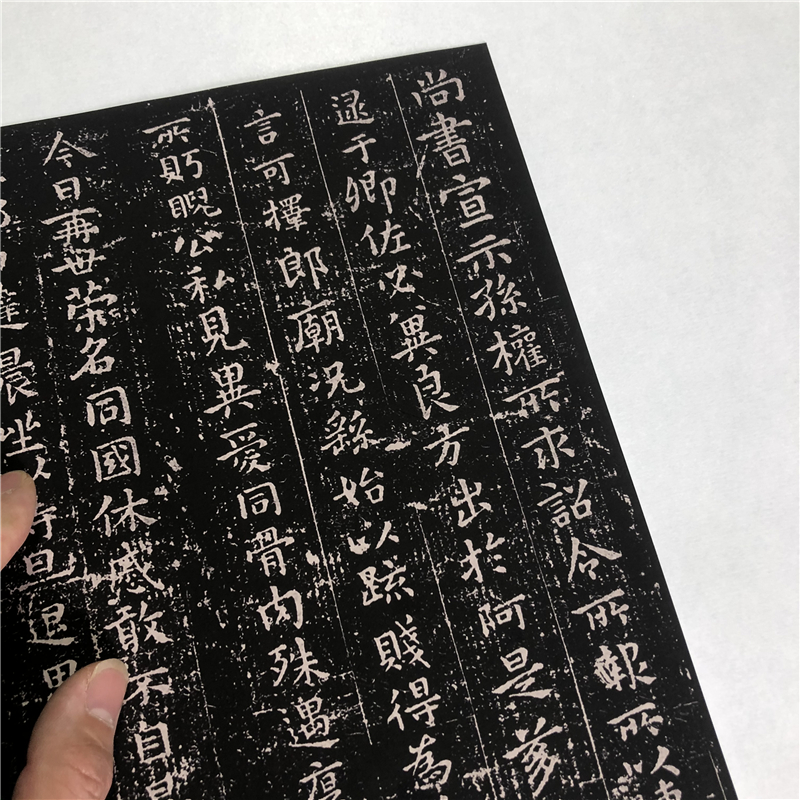 尚書宣示孫權所求詔令所報所以
逮于卿佐必冀良方出於阿是芻
言可擇郎廟況繇始以疏賤得為
所眄睨公私見異愛同骨肉殊遇
今日再世榮名同國休慼敢不自
晨坐以待旦退思